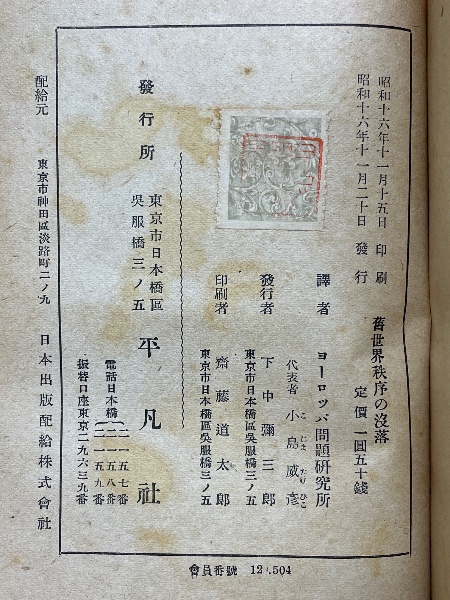 昭和十六年十一月十五日 印刷
昭和十六年十一月二十日 發行
舊世界秩序の沒落
定價 一圓五十錢
譯者 ヨーロッパ問題硏究所
代表者 小島威彥
こじまたけひこ
發行者 下中彌三郎
東京市日本橋區吳服橋三ノ五
印刷者 齋藤道太郎
東京市日本橋區吳服橋三ノ五
發行所
東京市日本橋區
吳服橋三ノ五
平凡社
電話日本橋
二一五七番
二一五八番
二一五九番
振替口座東京二九六三九番
配給元 東京市神田區淡路町二ノ九 日本出版配給株式會社
會員番號